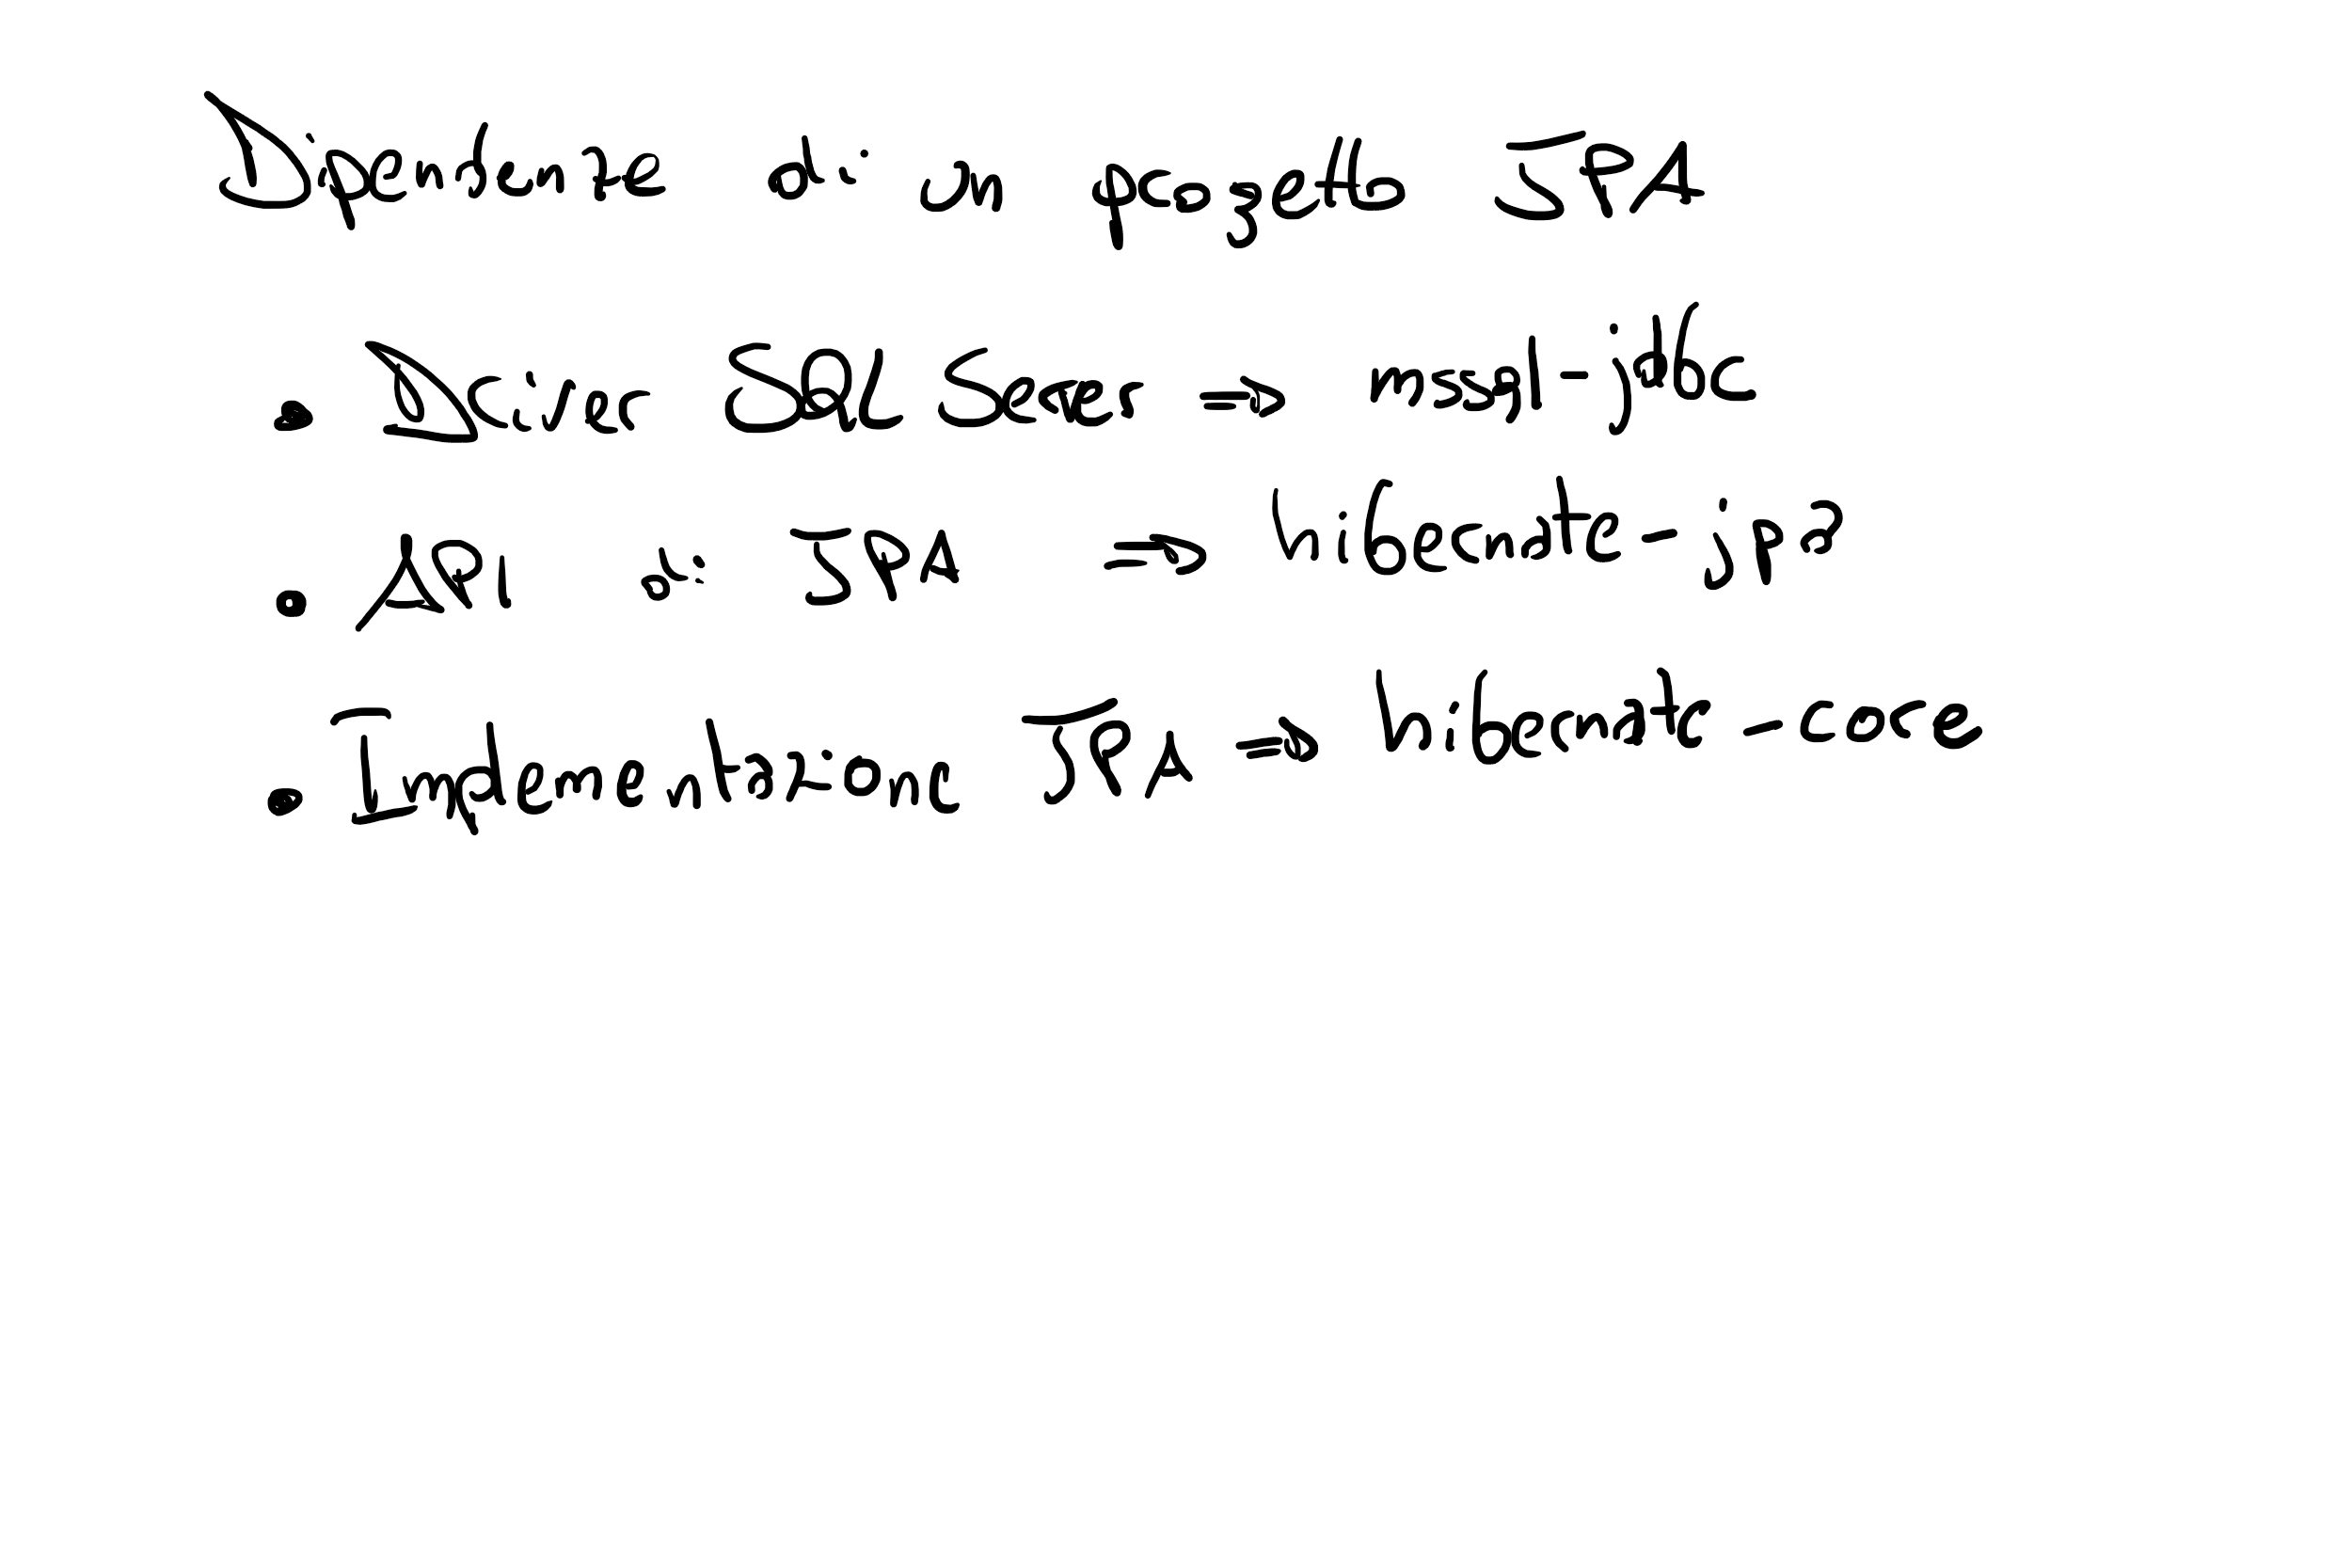 Dipendenze di un progetto JPA
• Driver SQL Server => mssql-jdbc
• API di JPA => hibernate-jpa
• Implementazione JPA => hibernate-core